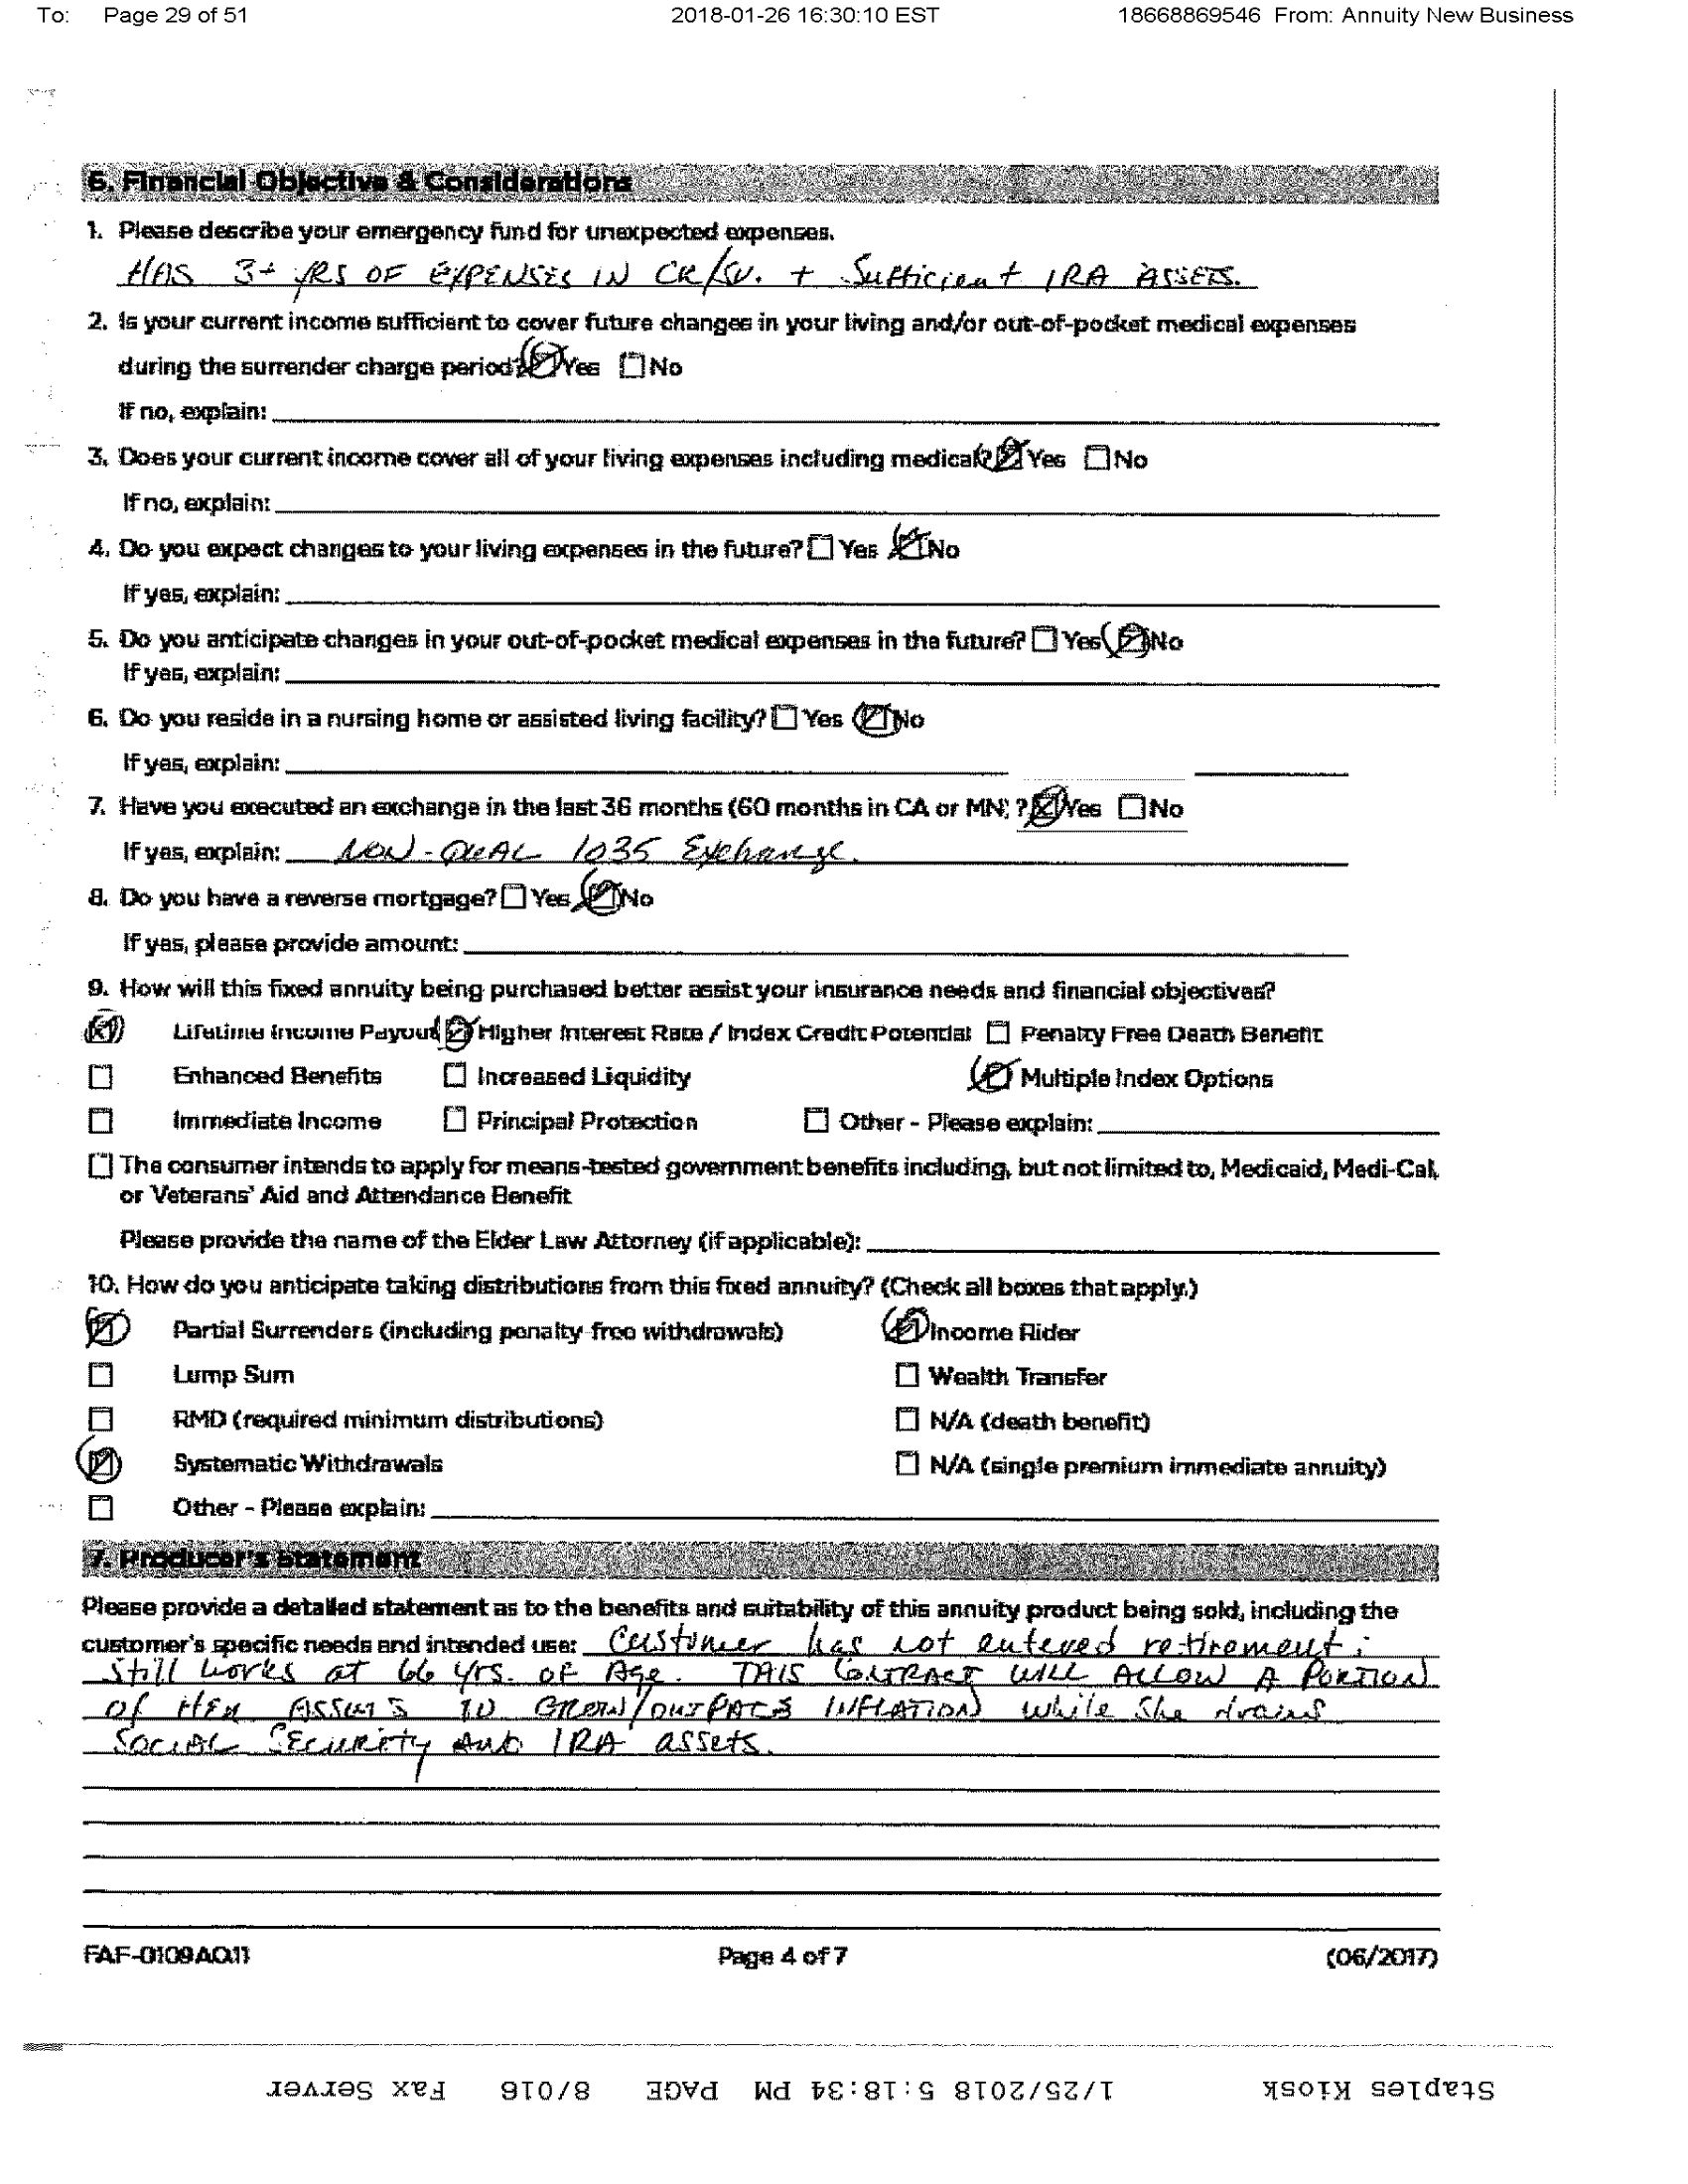 To: Page 29 of 51 2018-01-26 16:30:10 EST 18668869546 From: Annuity New Business
6. Financial Objective & Considerations
1. Please describe your emergency fund for unexpected expenses.
HAS 3+ YRS OF EXPENSES IN CK/SV. + Sufficient IRA ASSETS.
2. Is your current income sufficient to cover future changes in your living and/or out-of-pocket medical expenses
during the surrender charge period? Yes No
If no, explain:
3. Does your current income cover all of your living expenses including medical? Yes No
If no, explain:
4. Do you expect changes to your living expenses in the future? Yes No
If yes, explain:
5. Do you anticipate changes in your out-of-pocket medical expenses in the future? Yes No
If yes, explain:
6. Do you reside in a nursing home or assisted living facility? Yes No
If yes, explain:
7. Have you executed an exchange in the last 36 months (60 months in CA or MN) ? Yes No
If yes, explain: NON-QUAL 1035 Exchange.
8. Do you have a reverse mortgage? Yes No
If yes, please provide amount:
9. How will this fixed annuity being purchased better assist your insurance needs and financial objectives?
Lifetime Income Payout Higher Interest Rate / Index Credit Potential Penalty Free Death Benefit
Enhanced Benefits Increased Liquidity Multiple Index Options
Immediate Income Principal Protection Other - Please explain:
The consumer intends to apply for means-tested government benefits including, but not limited to, Medicaid, Medi-Cal,
or Veterans' Aid and Attendance Benefit
Please provide the name of the Elder Law Attorney (if applicable):
10. How do you anticipate taking distributions from this fixed annuity? (Check all boxes that apply.)
Partial Surrenders (including penalty-free withdrawals) Income Rider
Lump Sum Wealth Transfer
RMD (required minimum distributions) N/A (death benefit)
Systematic Withdrawals N/A (single premium immediate annuity)
Other - Please explain:
7. Producer's Statement
Please provide a detailed statement as to the benefits and suitability of this annuity product being sold, including the
customer's specific needs and intended use: Customer has not entered retirement;
still works at 66 yrs. OF Age. THIS CONTRACT WILL ALLOW A PORTION
OF HER ASSETS TO GROW/OUTPACE INFLATION while She draws
SOCIAL SECURITY AND IRA assets.
FAF-0109AO.11 Page 4 of 7 (06/2017)
Staples Kiosk 1/25/2018 5:18:34 PM PAGE 8/016 Fax Server